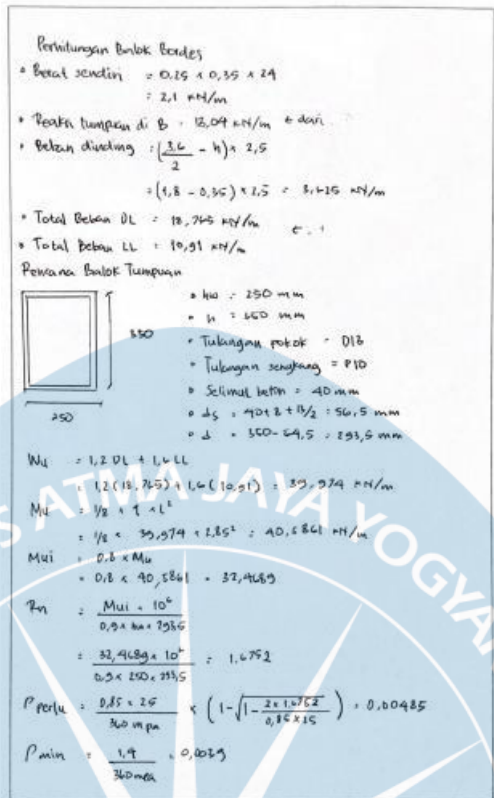 Perhitungan Balok Bordes
• Berat sendiri = 0,25 x 0,35 x 24
= 2,1 kN/m
• Reaksi tumpuan di B = 13,04 kN/m ← dari
• Beban dinding = (3,6/2 - h) x 2,5
= (1,8 - 0,35) x 2,5 = 3,625 kN/m
• Total Beban DL = 18,765 kN/m
• Total Beban LL = 10,91 kN/m
Rencana Balok Tumpuan
350
250
• bw = 250 mm
• h = 350 mm
• Tulangan pokok = D13
• Tulangan sengkang = P10
• Selimut beton = 40 mm
• ds = 40 + 8 + 13/2 = 56,5 mm
• d = 350 - 56,5 = 293,5 mm
Wu = 1,2 DL + 1,6 LL
= 1,2 (18,765) + 1,6 (10,91) = 39,974 kN/m
Mu = 1/8 x q x L²
= 1/8 x 39,974 x 2,85² = 40,5861 kN/m
Mui = 0,8 x Mu
= 0,8 x 40,5861 = 32,4689
Rn = Mui x 10⁶ / 0,9 x bw x 293,5
= 32,4689 x 10⁶ / 0,9 x 250 x 293,5 = 1,6752
ρ perlu = 0,85 x 25 / 360 mpa x (1 - √(1 - 2 x 1,6752 / 0,85 x 25)) = 0,00485
ρ min = 1,4 / 360 mpa = 0,0039
S ATMA JAYA YOGYA